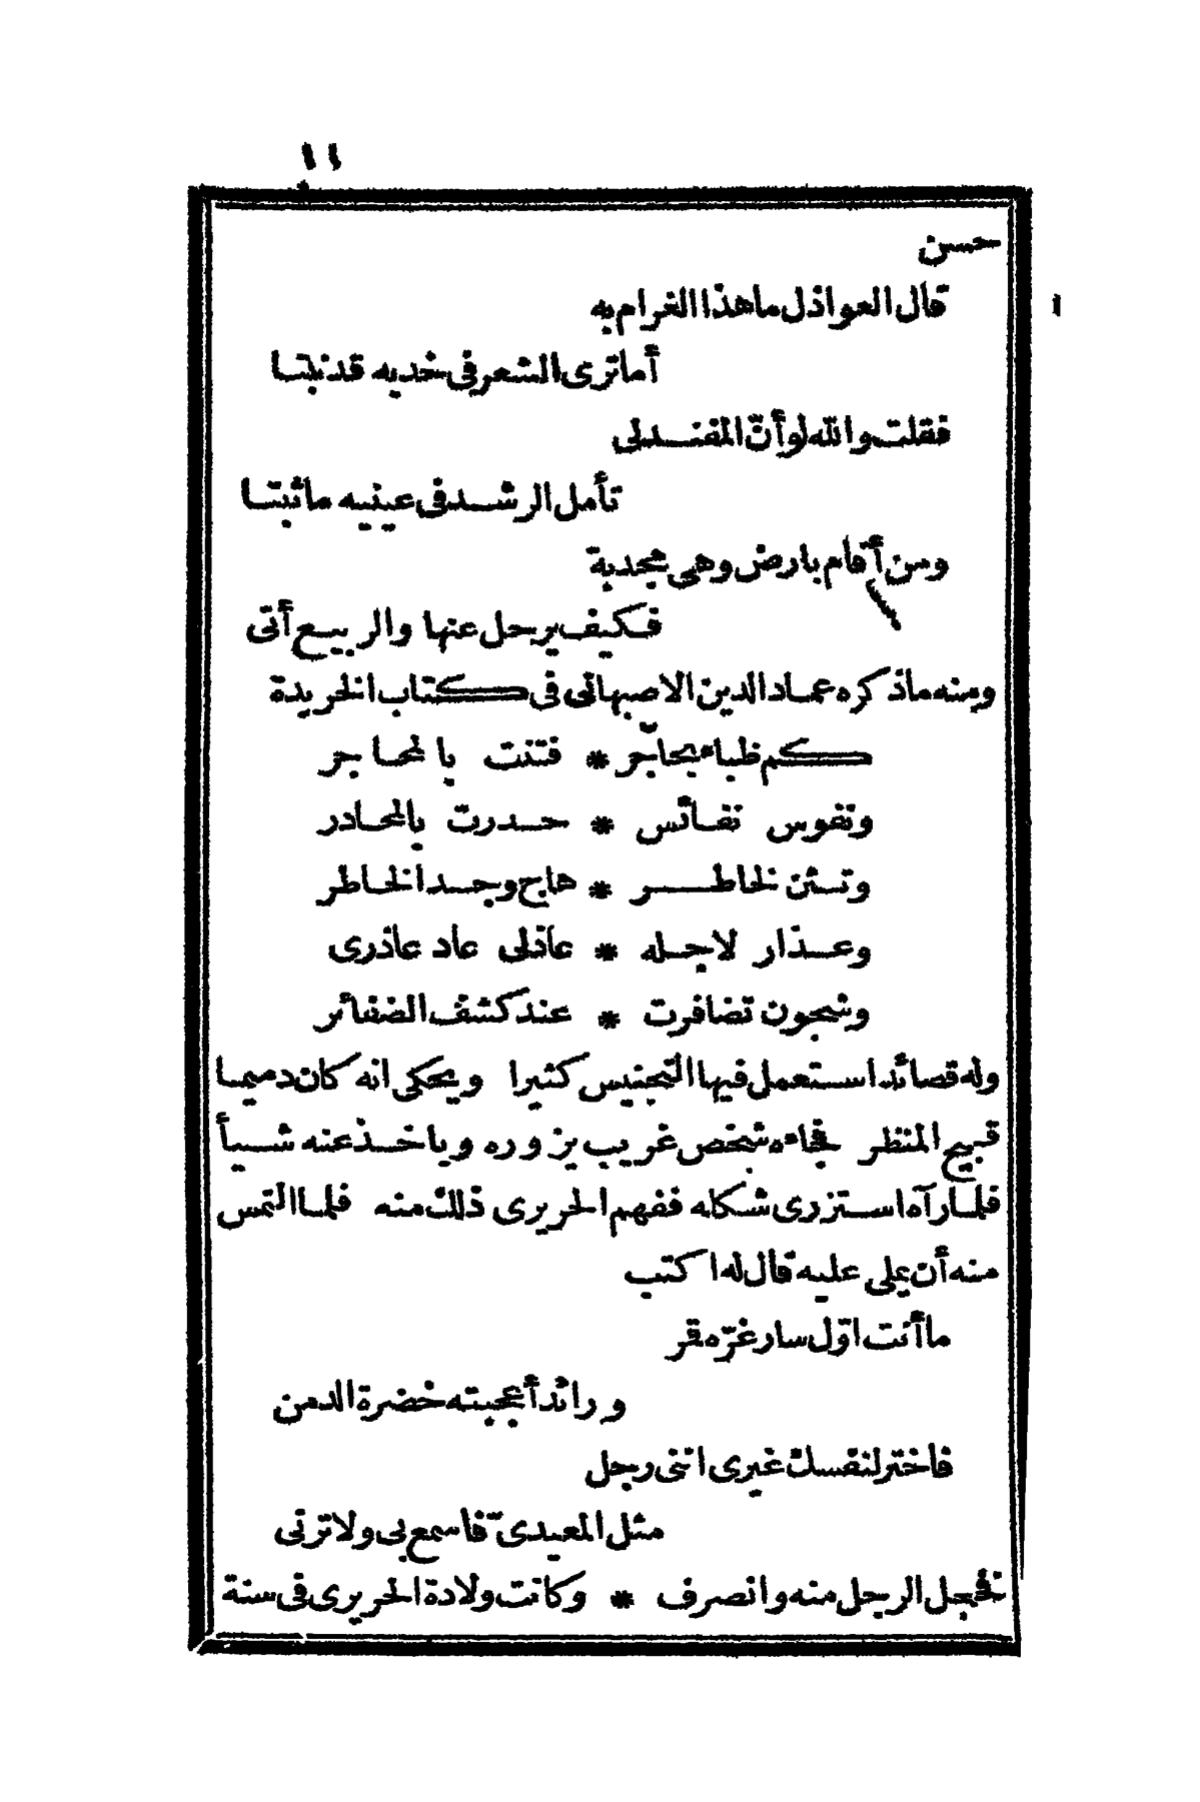 ١١
حسن
قال العواذل ما هذا الغرام به
أما ترى الشعر فى خديه قد نبتا
فقلت والله لو أنّ المفند لى
تأمل الرشد فى عينيه ما ثبتا
ومن أقام بارض وهى مجدبة
فكيف يرحل عنها والربيع أتى
ومنه ما ذكره عماد الدين الاصبهانى فى كتاب الخريدة
كم ظباء بحاجر * فتنت بالمحاجر
ونفوس نفائس * حدرت بالمحادر
وتثن لخاطر * هاج وجد الخاطر
وعذار لاجله * عاذلى عاد عاذرى
وشجون تضافرت * عند كشف الضفائر
وله قصائد استعمل فيها التجنيس كثيرا ويحكى انه كان دميما
قبيح المنظر فجاءه شخص غريب يزوره وياخذ عنه شيأ
فلما رآه استزرى شكله ففهم الحريرى ذلك منه فلما التمس
منه أن يملى عليه قال له اكتب
ما أنت اوّل سار غرّه قمر
ورائد أعجبته خضرة الدمن
فاختر لنفسك غيرى اننى رجل
مثل المعيدىّ فاسمع بى ولا ترنى
فخجل الرجل منه وانصرف * وكانت ولادة الحريرى فى سنة